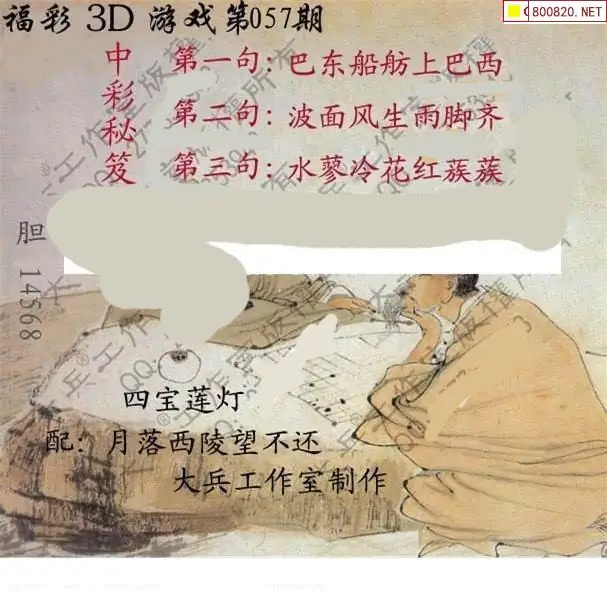 福彩 3D 游戏第057期
C800820.NET
中彩秘笈
第一句：巴东船舫上巴西
第二句：波面风生雨脚齐
第三句：水蓼冷花红蔟蔟
胆 14568
四宝莲灯
配：月落西陵望不还
大兵工作室制作